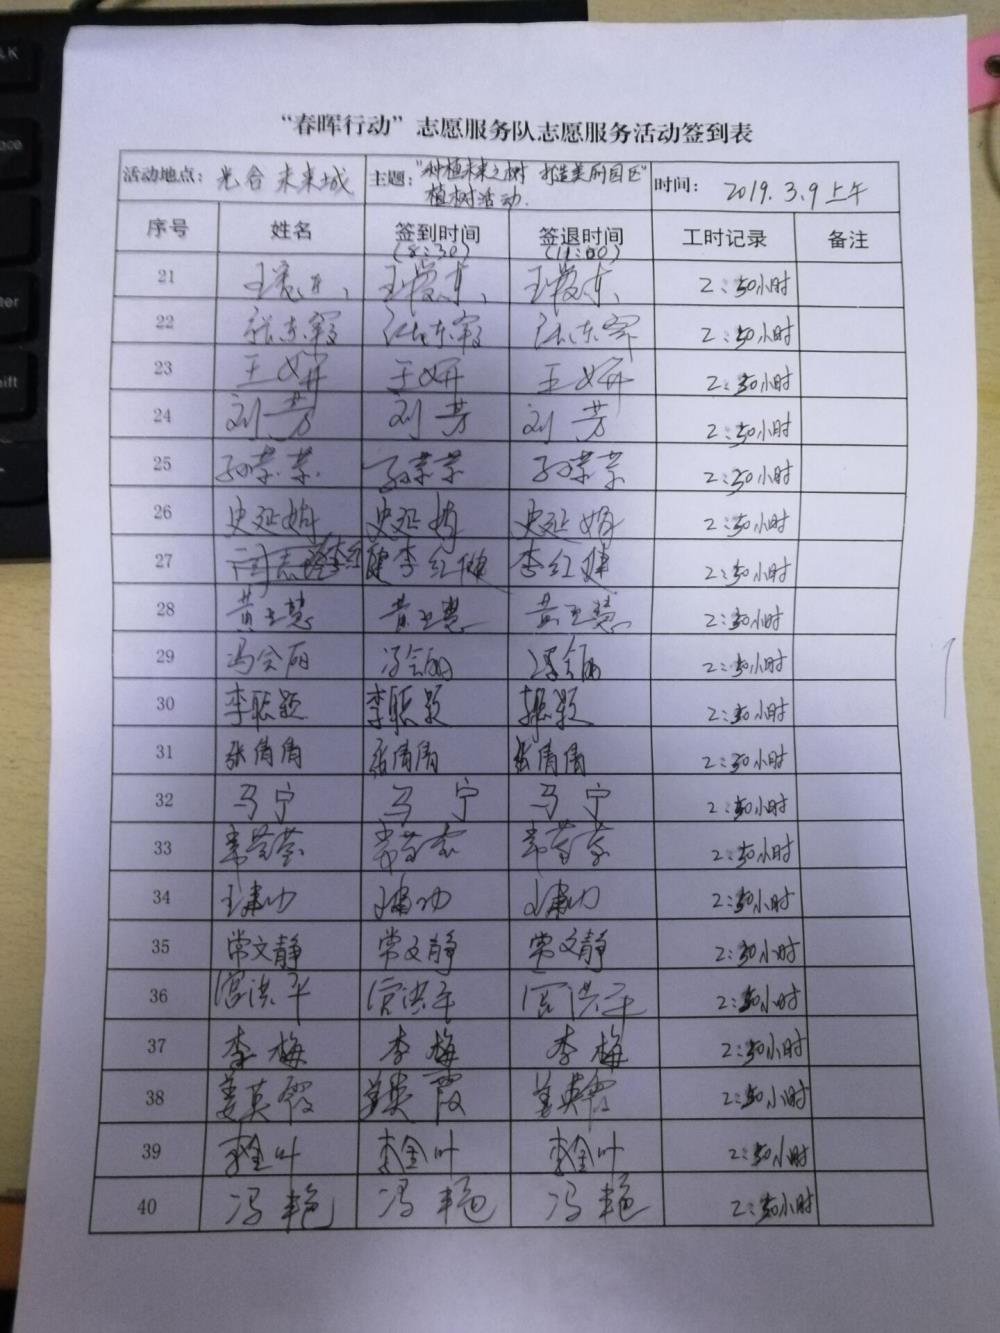 “春晖行动”志愿服务队志愿服务活动签到表
活动地点：光合未来城 主题：“种植未来之树 打造美丽园区” 时间：2019.3.9上午
植树活动.
序号 姓名 签到时间 签退时间 工时记录 备注
(8:30) (11:00)
21 2:30小时
22 张东霞 张东霞 张东霞 2:30小时
23 王妍 王妍 王妍 2:30小时
24 刘芳 刘芳 刘芳 2:30小时
25 孙荣荣 孙荣荣 孙荣荣 2:30小时
26 史延娟 史延娟 史延娟 2:30小时
27 李红健 李红健 李红健 2:30小时
28 黄玉慧 黄玉慧 黄玉慧 2:30小时
29 冯会丽 冯会丽 冯会丽 2:30小时
30 李聪颖 李聪颖 2:30小时
31 张倩倩 张倩倩 张倩倩 2:30小时
32 马宁 马宁 马宁 2:30小时
33 2:30小时
34 王建功 王建功 王建功 2:30小时
35 常文静 常文静 常文静 2:30小时
36 宫洪平 宫洪平 宫洪平 2:30小时
37 李梅 李梅 李梅 2:30小时
38 姜英霞 姜英霞 姜英霞 2:30小时
39 李金叶 李金叶 李金叶 2:30小时
40 冯艳 冯艳 冯艳 2:30小时